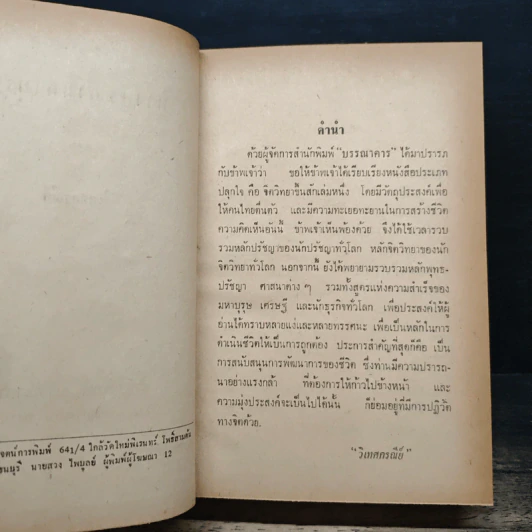 จตน์การพิมพ์ 641/4 ใกล้วัดใหม่พิเรนทร์ โพธิ์สามต้น
ธนบุรี นายสวง ไพบูลย์ ผู้พิมพ์ผู้โฆษณา 12
คำนำ
ด้วยผู้จัดการสำนักพิมพ์ “บรรณาคาร” ได้มาปรารภ
กับข้าพเจ้าว่า ขอให้ข้าพเจ้าได้เรียบเรียงหนังสือประเภท
ปลุกใจ คือ จิตวิทยาขึ้นสักเล่มหนึ่ง โดยมีวัตถุประสงค์เพื่อ
ให้คนไทยตื่นตัว และมีความทะเยอทะยานในการสร้างชีวิต
ความคิดเห็นอันนี้ ข้าพเจ้าเห็นพ้องด้วย จึงได้ใช้เวลารวบ
รวมหลักปรัชญาของนักปรัชญาทั่วโลก หลักจิตวิทยาของนัก
จิตวิทยาทั่วโลก นอกจากนี้ ยังได้พยายามรวบรวมหลักพุทธ-
ปรัชญา ศาสนาต่าง ๆ รวมทั้งสูตรแห่งความสำเร็จของ
มหาบุรุษ เศรษฐี และนักธุรกิจทั่วโลก เพื่อประสงค์ให้ผู้
อ่านได้ทราบหลายแง่และหลายทรรศนะ เพื่อเป็นหลักในการ
ดำเนินชีวิตให้เป็นการถูกต้อง ประการสำคัญที่สุดก็คือ เป็น
การสนับสนุนการพัฒนาการของชีวิต ซึ่งท่านมีความปรารถ-
นาอย่างแรงกล้า ที่ต้องการให้ก้าวไปข้างหน้า และ
ความมุ่งประสงค์จะเป็นไปได้นั้น ก็ย่อมอยู่ที่มีการปฏิวัติ
ทางจิตด้วย.
“วิเทศกรณีย์”